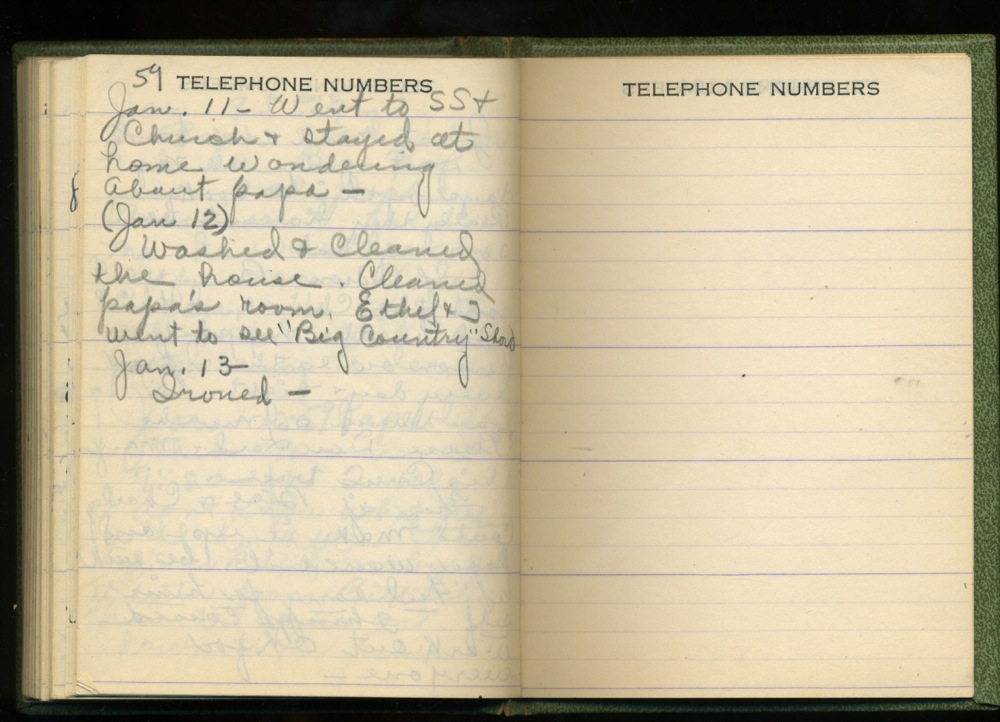 59 TELEPHONE NUMBERS
Jan. 11 - Went to SS +
Church + stayed at
home wondering
about papa -
(Jan 12)
Washed & Cleaned
the house. Cleaned
papa's room. Ethel + I
went to see "Big Country" Show
Jan. 13-
Ironed -
TELEPHONE NUMBERS